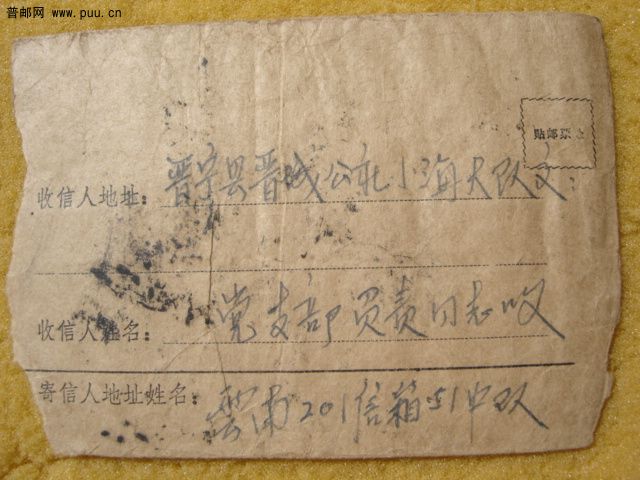 普邮网 www.puu.cn
贴邮票处
收信人地址: 晋宁县晋城公社小海大队
收信人姓名: 党支部负责同志收
寄信人地址姓名: 云南201信箱51中队